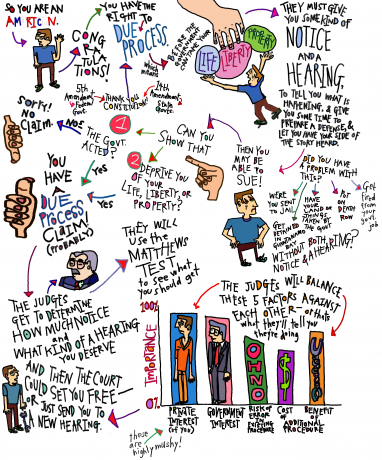 SO YOU ARE AN
AMERICAN.
CONG
RA
TULA
TIONS!
YOU HAVE
THE RIGHT TO
DUE
PROCESS.
WHICH
MEANS
BEFORE THE
GOVERNMENT
CAN TAKE YOUR
LIFE
LIBERTY
PROPERTY
THEY MUST GIVE
YOU SOME KIND OF
NOTICE
AND A
HEARING,
TO TELL YOU WHAT IS
HAPPENING, & GIVE
YOU SOME TIME TO
PREPARE A DEFENSE, &
LET YOU HAVE YOUR SIDE
OF THE STORY HEARD.
5th
Amendment,
Federal
Govt.
THANK THE
CONSTITUTION!
14th
Amendment,
State
Govts.
DID YOU HAVE
A PROBLEM WITH
THIS?
WERE
YOU SENT
TO JAIL
GET
DETAINED
IN
GUANTANAMO
BAY
HAVE
YOUR
LAND OR
THINGS
TAKEN BY
THE GOVT
PUT
ON
DEATH
ROW
Got
fired
from
your
govt.
job
WITHOUT BOTH
NOTICE & A HEARING??
THEN YOU
MAY BE
ABLE TO
SUE!
CAN YOU
SHOW THAT
1
THE GOVT.
ACTED?
2
DEPRIVE YOU
OF YOUR
LIFE, LIBERTY, OR
PROPERTY?
NOS
Sorry!
NO
CLAIM.
Yes
Yes
YOU
HAVE
A
DUE
PROCESS
CLAIM!
(PROBABLY)
THEY WILL
USE the
MATTHEWS
TEST
to see
what you
should get
THE JUDGES
GET TO DETERMINE
HOW MUCH NOTICE
and
WHAT KIND OF A HEARING
YOU DESERVE
AND THEN THE COURT
COULD SET YOU FREE—
OR JUST SEND YOU TO
A NEW HEARING.
THE JUDGES WILL BALANCE
THESE 5 FACTORS AGAINST
EACH OTHER— or that's
what they'll tell you
they're doing
100%
IMPORTANCE
0%
OH NO
$
PRIVATE
INTEREST
(of you)
GOVERNMENT
INTEREST
RISK OF
ERROR
IN
EXISTING
PROCEDURE
COST
OF
BENEFIT
OF
ADDITIONAL
PROCEDURE
these
are
highly mushy!